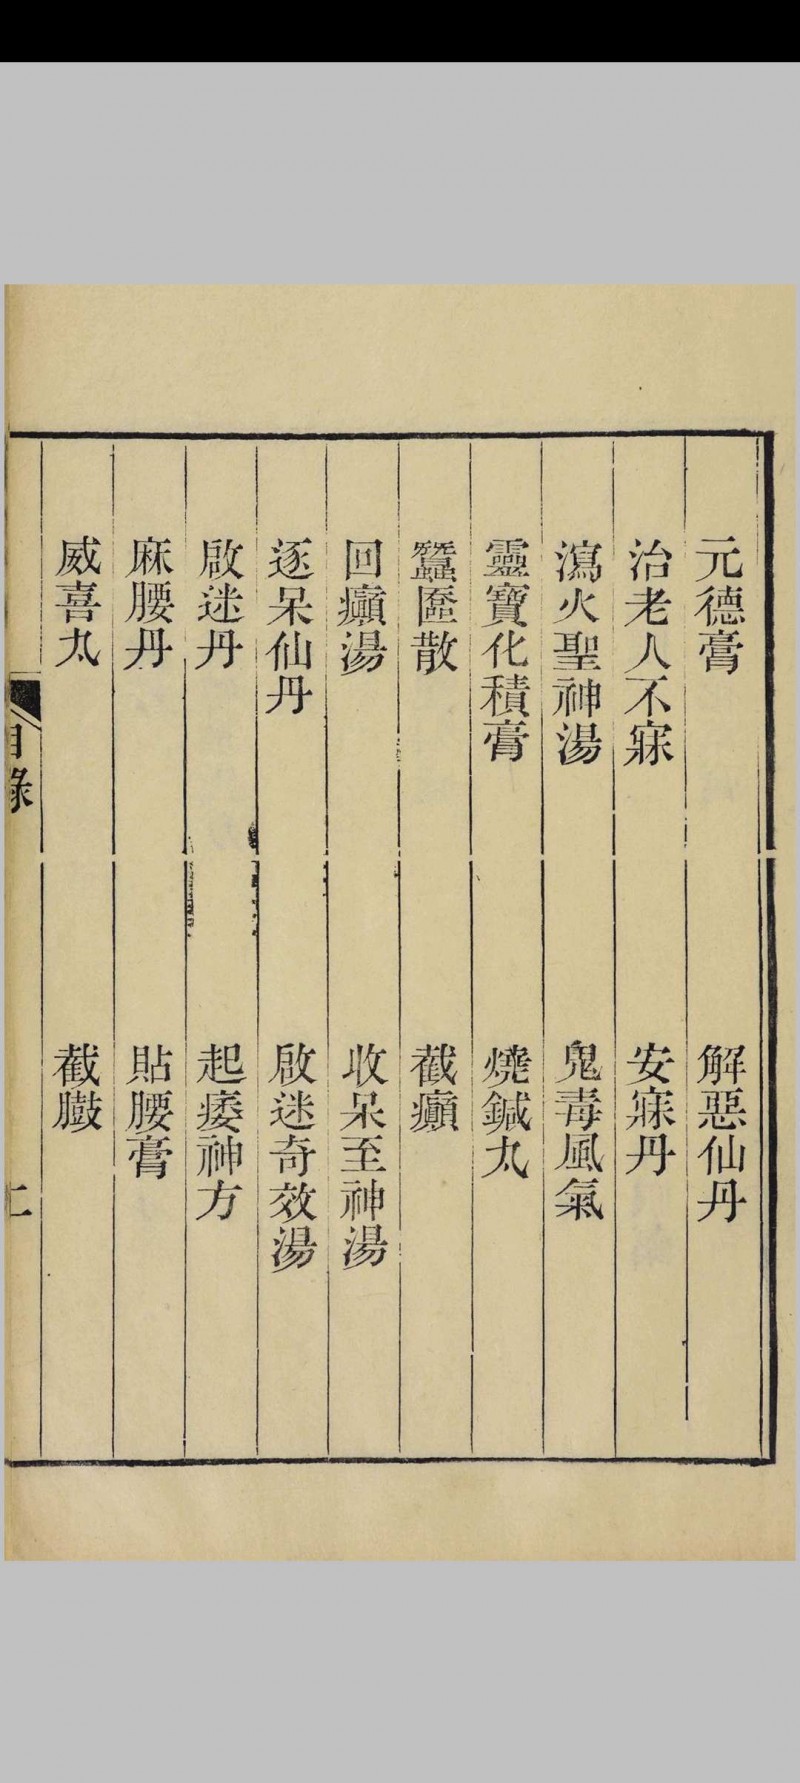 元德膏　解惡仙丹
治老人不寐　安寐丹
瀉火聖神湯　鬼毒風氣
靈寶化積膏　燒鍼丸
蠶匳散　截癲
回癲湯　收呆至神湯
逐呆仙丹　啟迷奇效湯
啟迷丹　起痿神方
麻腰丹　貼腰膏
威喜丸　截臌
目錄